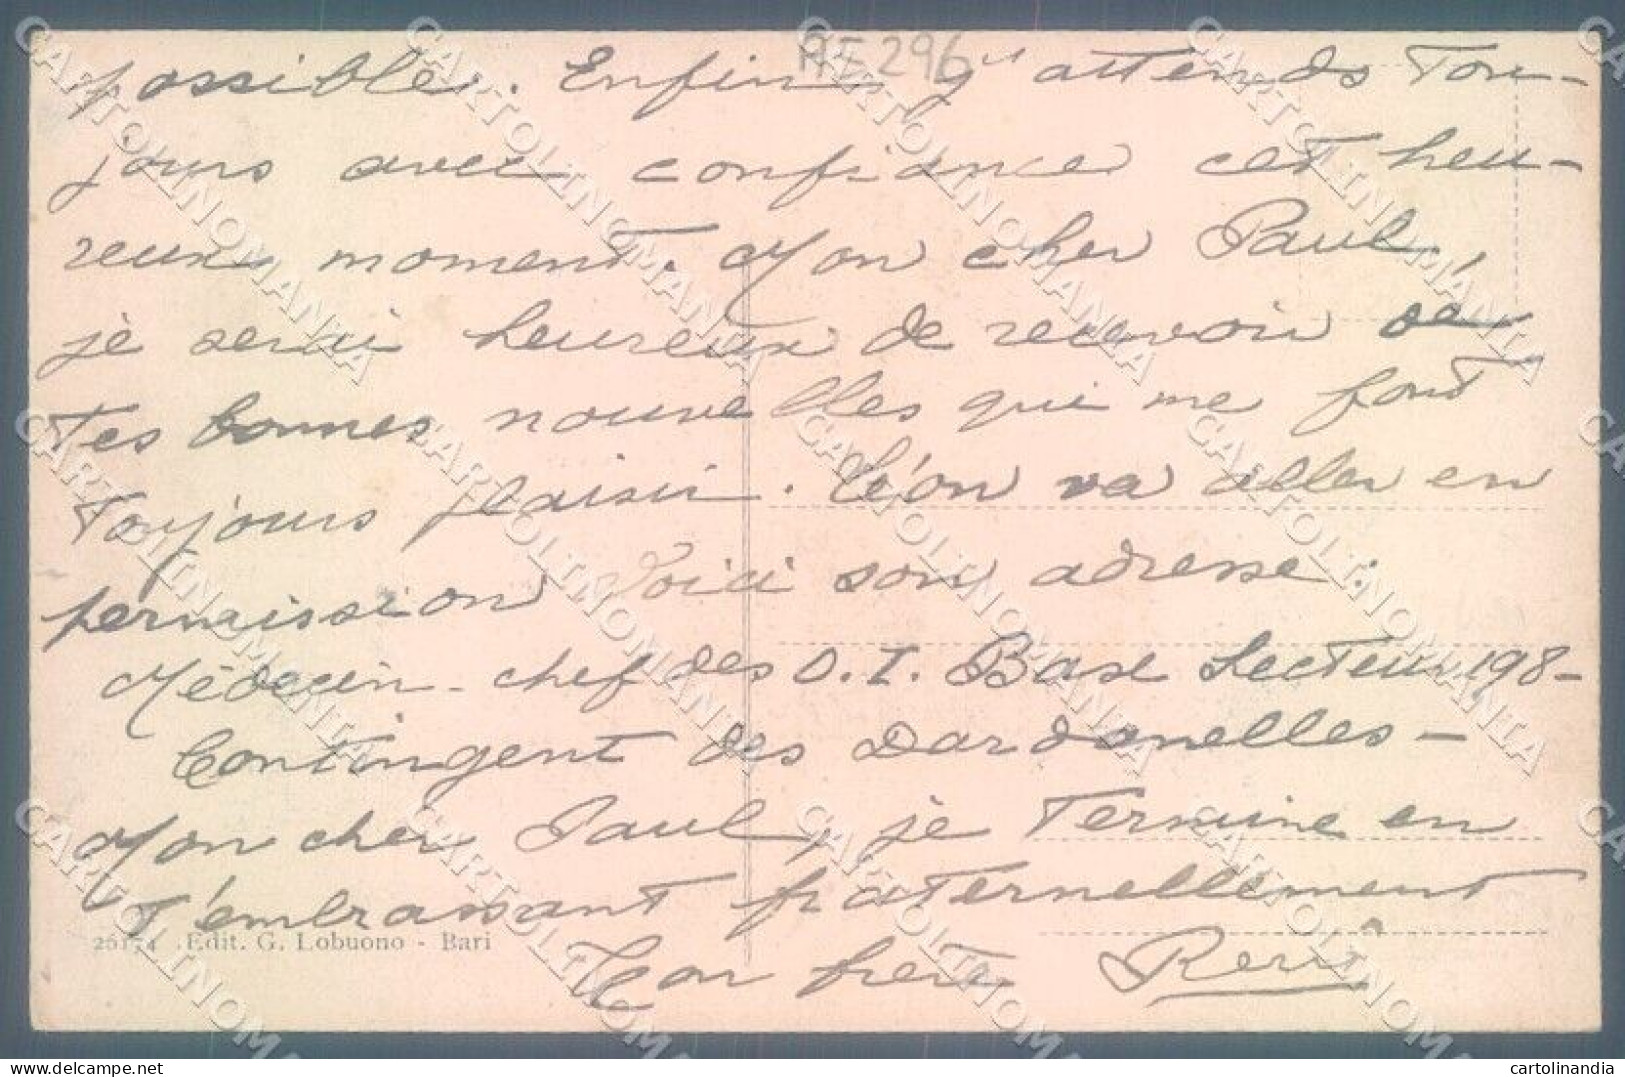 AE296
possibles. Enfin j'attends Tou-
jours avec confiance cet heu-
reux moment. Mon cher Paul,
je serai heureux de recevoir de
Tes bonnes nouvelles qui me font
Toujours plaisir. Léon va aller en
permission Voici son adresse :
Médecin-chef des O.I. Base Secteur 198-
Contingent des Dardanelles-
Mon cher Paul, je Termine en
T'embrassant fraternellement
26174 Edit. G. Lobuono - Bari
Ton frère René
cartolinandia